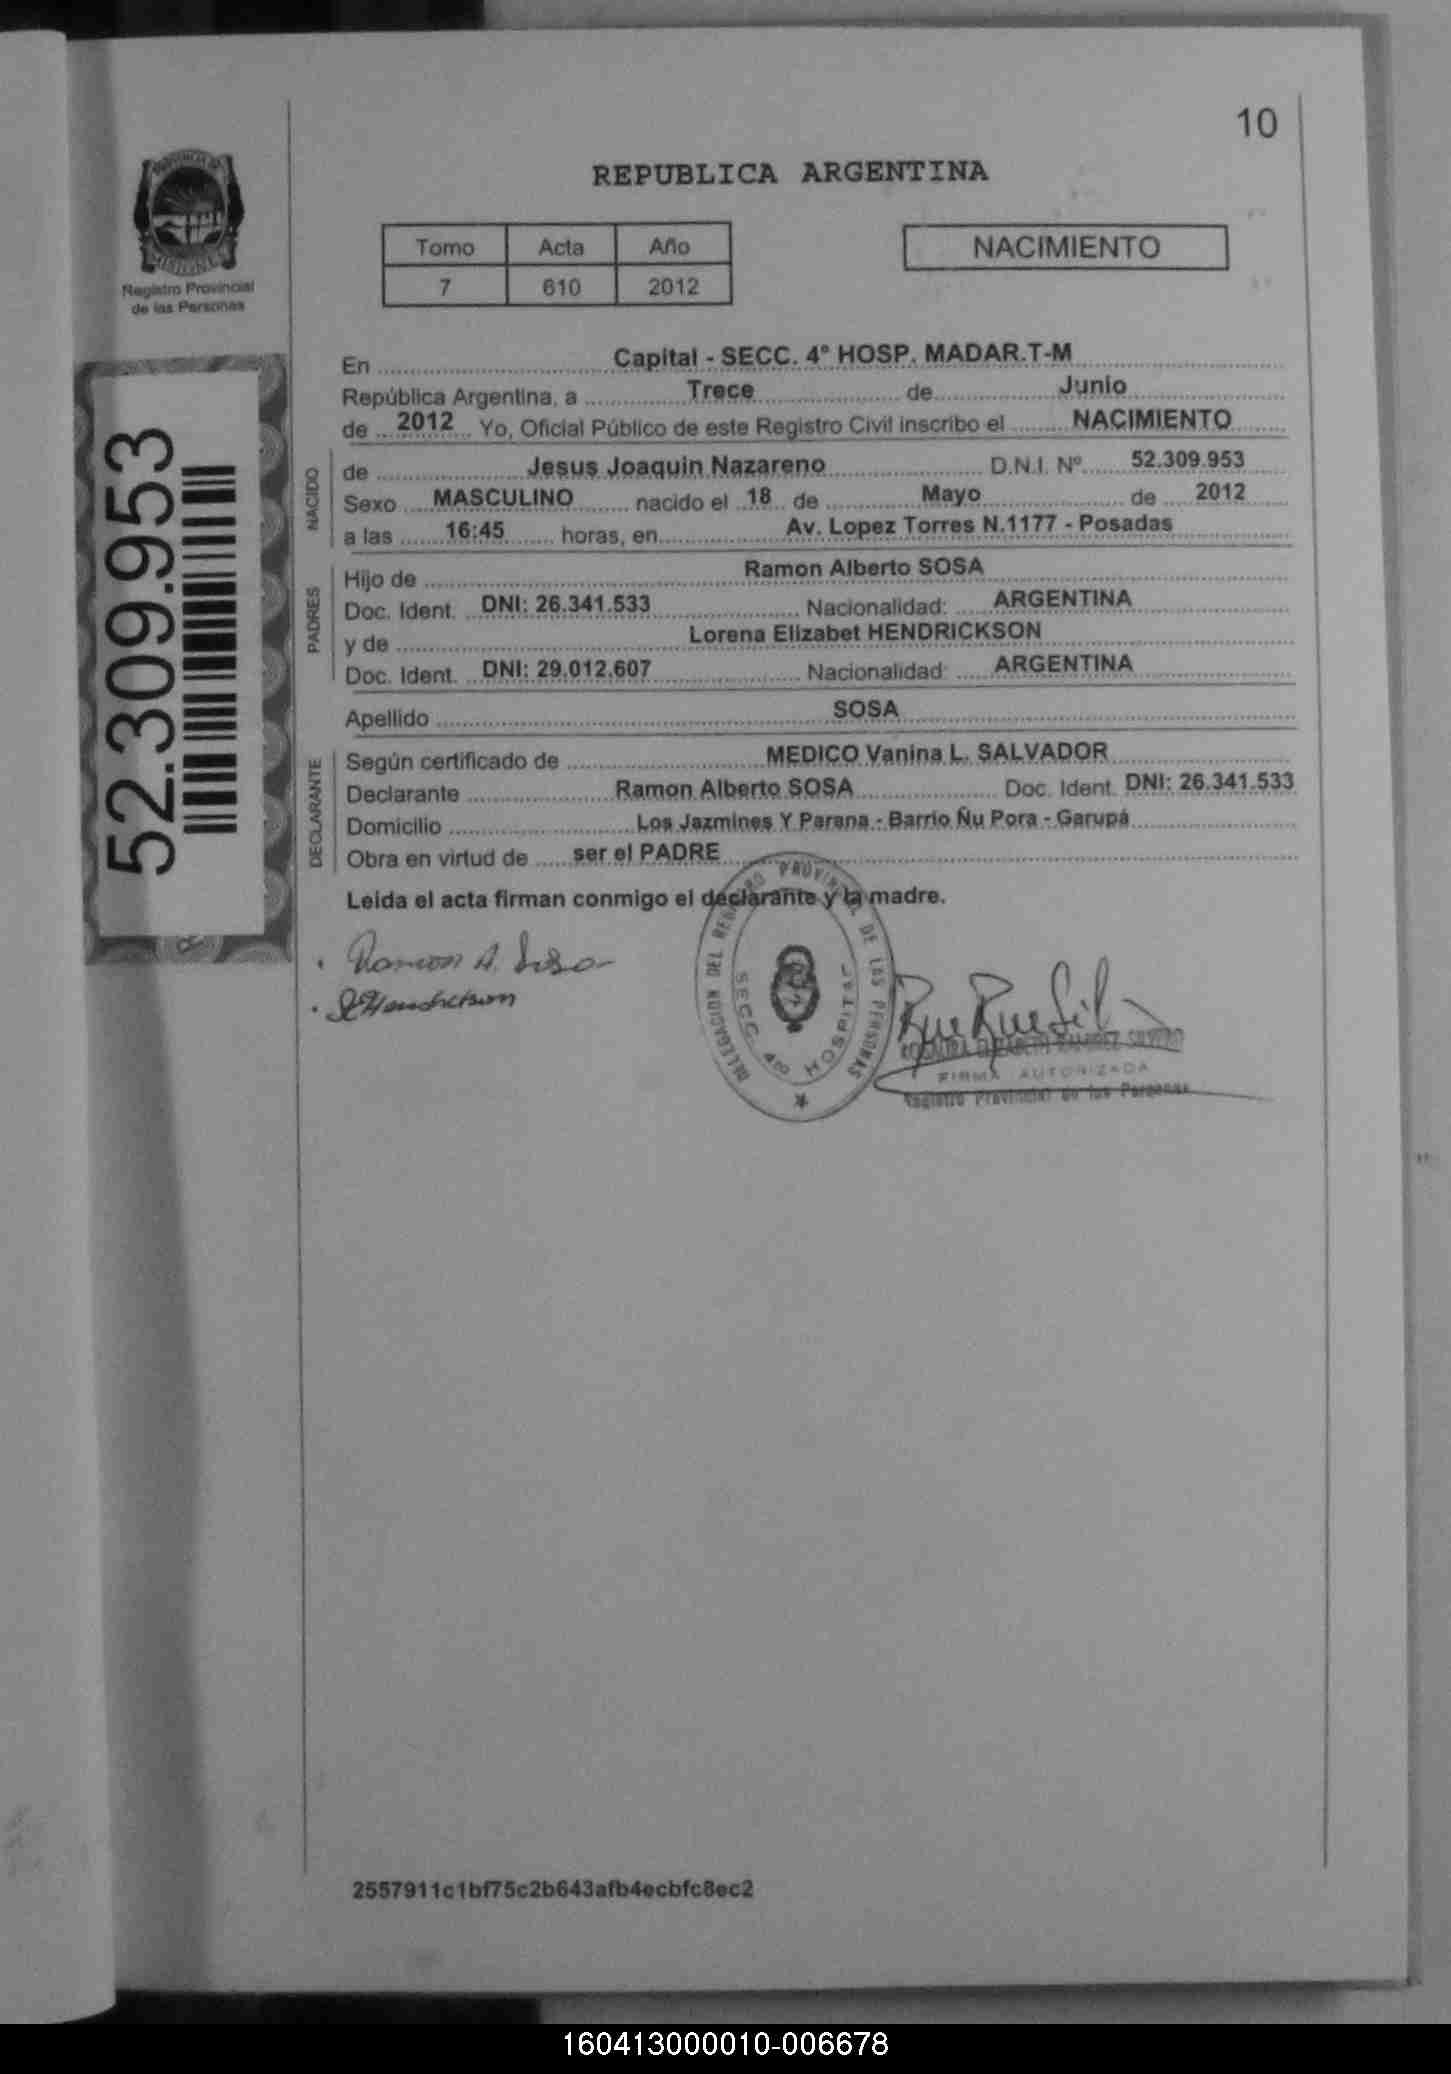 10
REPUBLICA ARGENTINA
PROVINCIA DE
MISIONES
Registro Provincial
de las Personas
Tomo Acta Año
7 610 2012
NACIMIENTO
En Capital - SECC. 4° HOSP. MADAR.T-M
República Argentina, a Trece de Junio
de 2012 Yo, Oficial Público de este Registro Civil inscribo el NACIMIENTO
NACIDO
de Jesus Joaquin Nazareno D.N.I. Nº 52.309.953
Sexo MASCULINO nacido el 18 de Mayo de 2012
a las 16:45 horas, en Av. Lopez Torres N.1177 - Posadas
PADRES
Hijo de Ramon Alberto SOSA
Doc. Ident. DNI: 26.341.533 Nacionalidad: ARGENTINA
y de Lorena Elizabet HENDRICKSON
Doc. Ident. DNI: 29.012.607 Nacionalidad: ARGENTINA
Apellido SOSA
DECLARANTE
Según certificado de MEDICO Vanina L. SALVADOR
Declarante Ramon Alberto SOSA Doc. Ident. DNI: 26.341.533
Domicilio Los Jazmines Y Parana - Barrio Ñu Pora - Garupá
Obra en virtud de ser el PADRE
Leida el acta firman conmigo el declarante y la madre.
52.309.953
Ramon A. Sosa
Hendrickson
DELEGACION DEL REGISTRO PROVINCIAL DE LAS PERSONAS
SECC. 4to HOSPITAL
RAMIREZ SILVERO
FIRMA AUTORIZADA
Registro Provincial de las Personas
2557911c1bf75c2b643afb4ecbfc8ec2
160413000010-006678